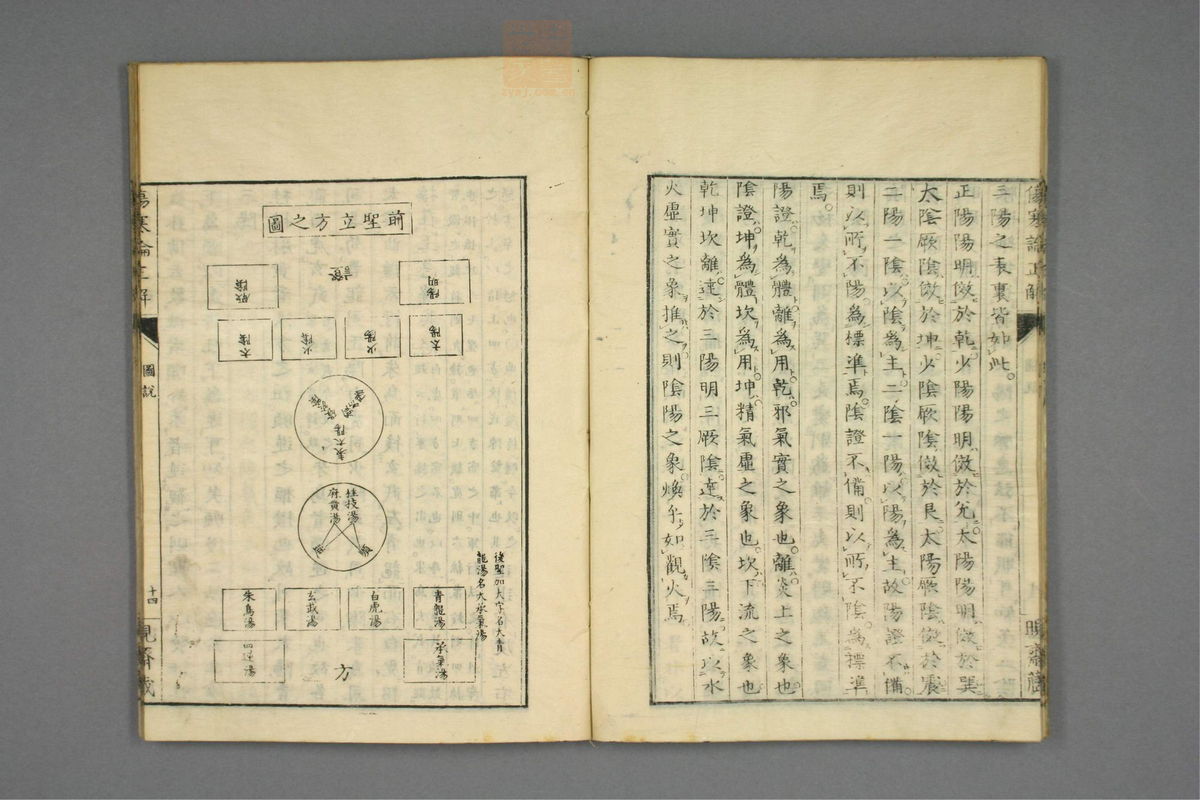 三陽之表裏皆如此。
正陽陽明倣於乾少陽陽明倣於兌太陽陽明倣於巽
太陰厥陰倣於坤少陰厥陰倣於艮太陽厥陰倣於震
二陽一陰以陰為主二陰一陽以陽為主故陽證不備
則以所不陽為標準焉陰證不備則以所不陰為標準
焉。
陽證乾為體離為用乾邪氣實之象也離炎上之象也
陰證坤為體坎為用坤精氣虛之象也坎下流之象也
乾坤坎離達於三陽明三厥陰達於三陰三陽故以水
火虛實之象推之則陰陽之象煥乎如觀火焉
前聖立方之圖
陽明
厥陰
太陽
少陽
少陰
太陰
表太陽
桂枝湯
麻黃湯
後聖加大字名大青
龍湯名大承氣湯
青龍湯
白虎湯
玄武湯
朱鳥湯
承氣湯
方
四逆湯
傷寒論正解
圖説
十四